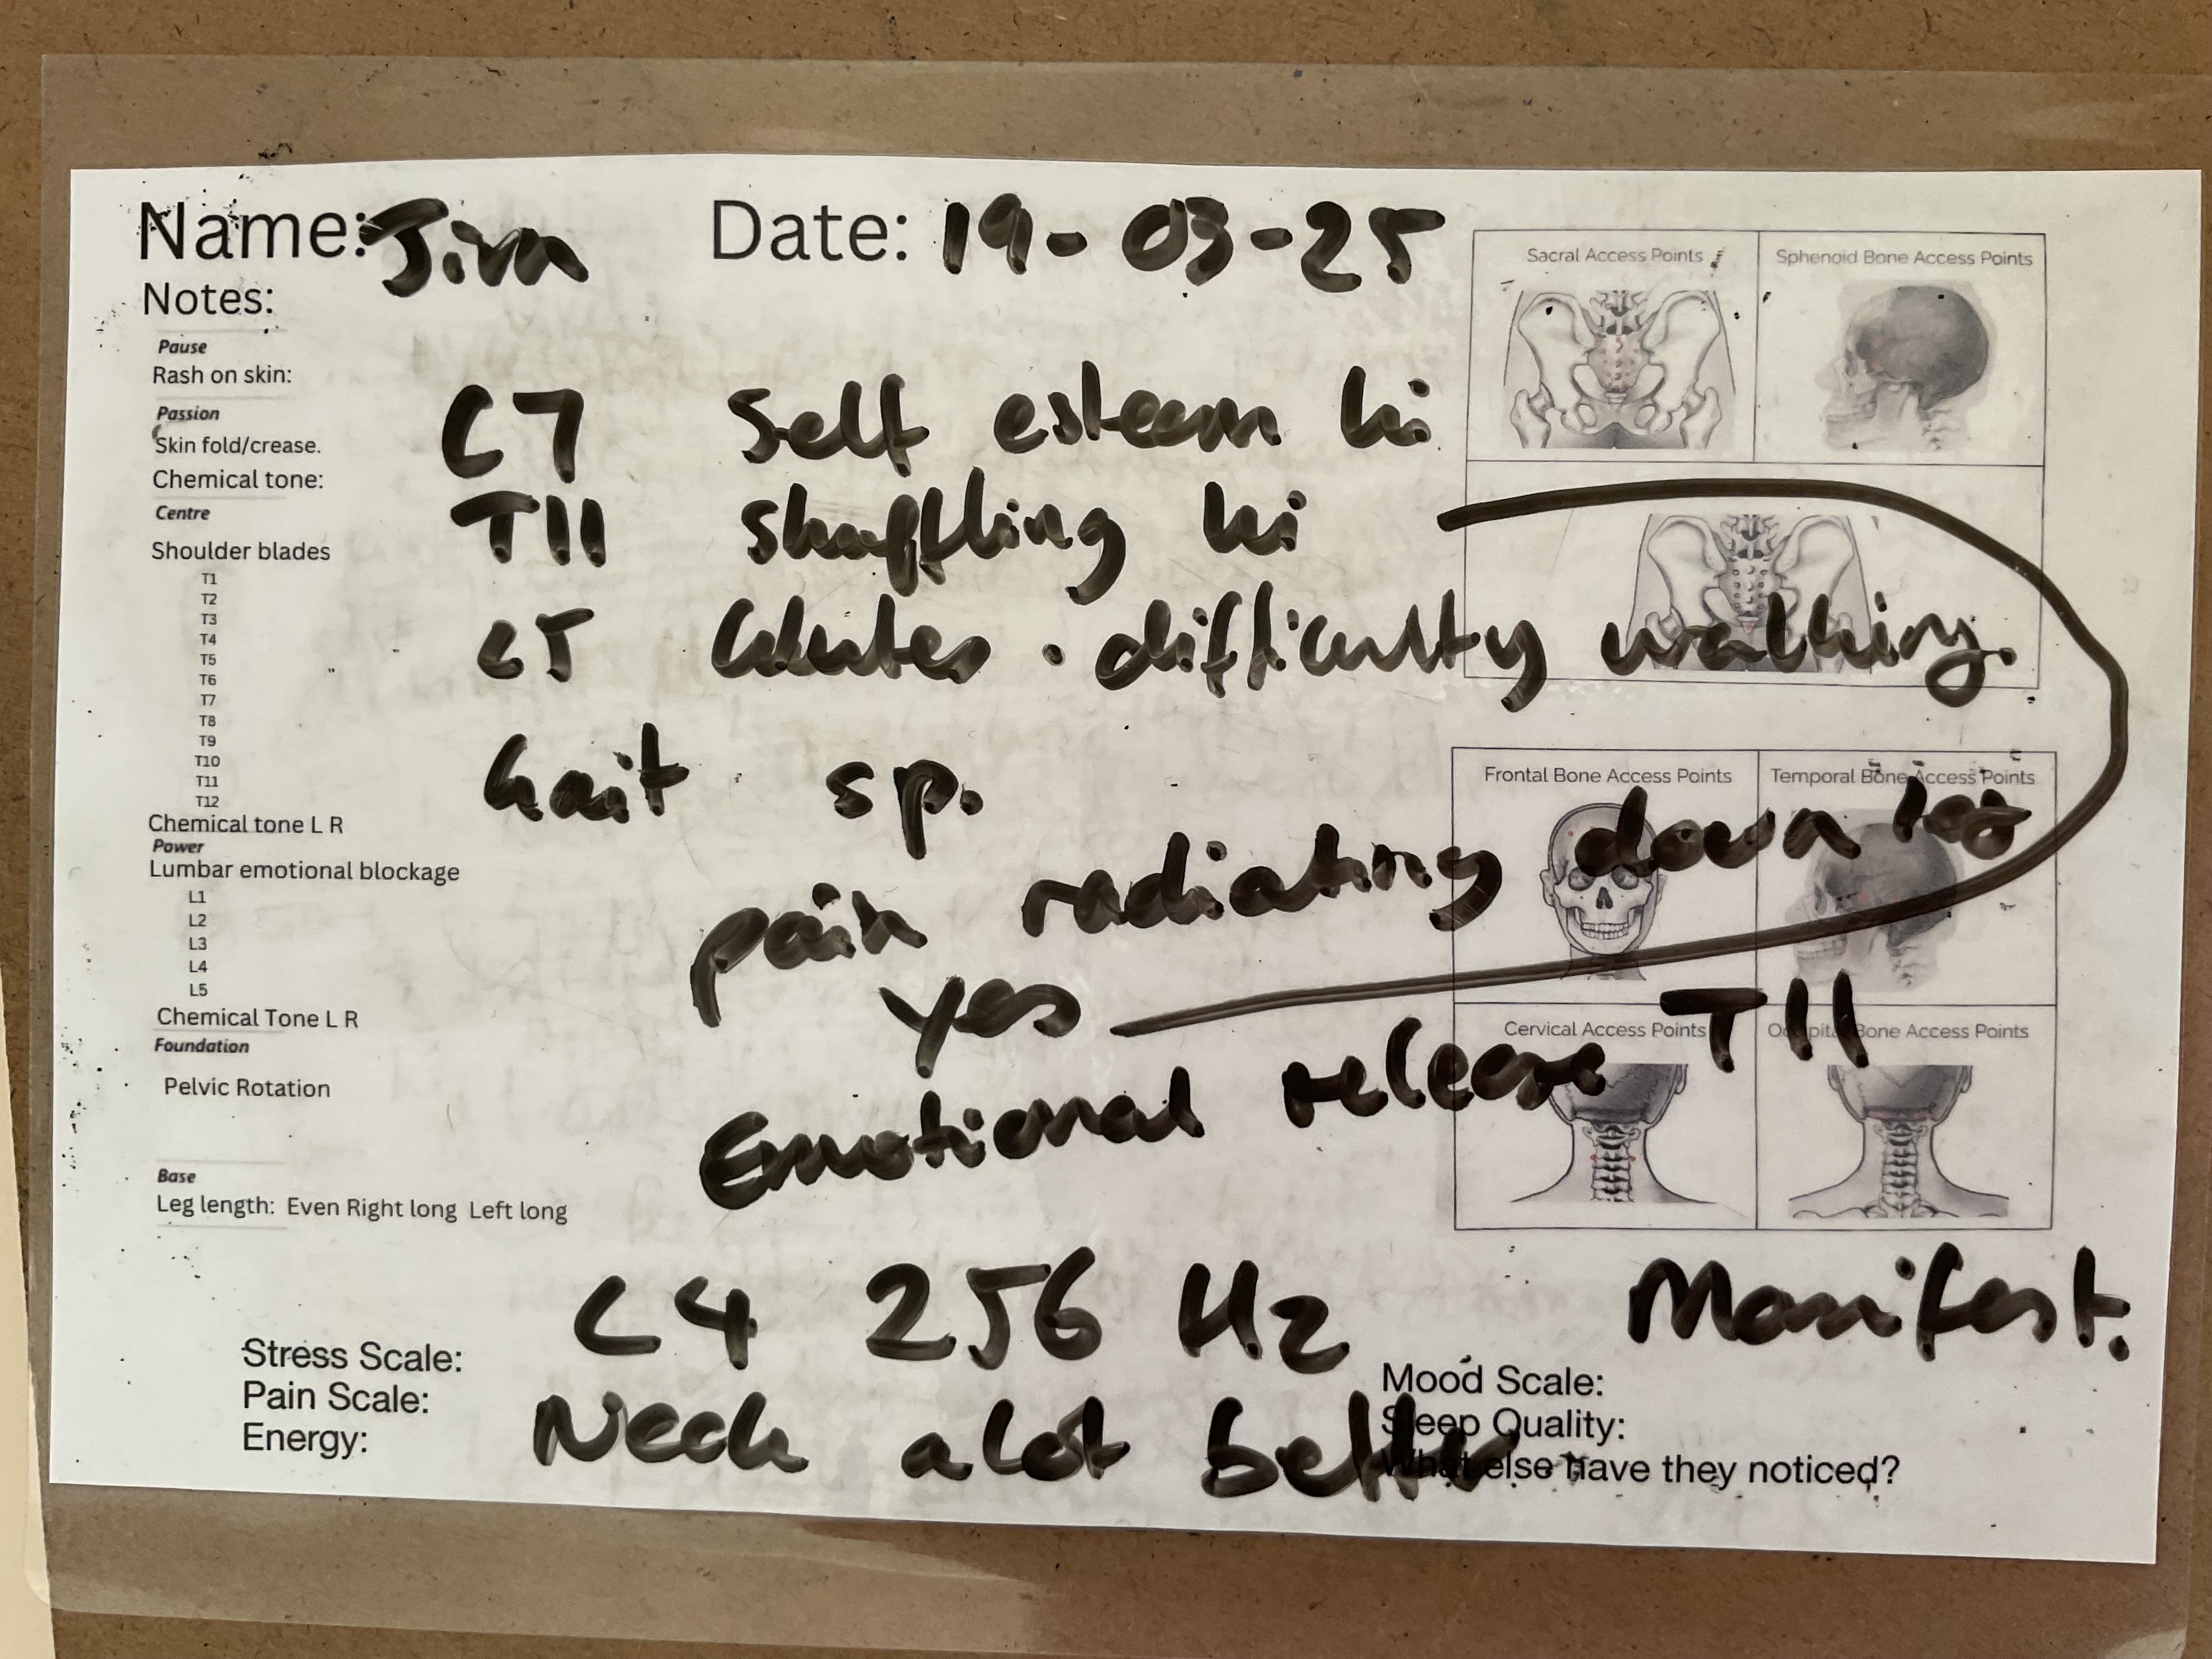 Name: Jim Date: 19-03-25
Notes:
Sacral Access Points
Sphenoid Bone Access Points
Pause
Rash on skin:
Passion
Skin fold/crease.
Chemical tone:
Centre
Shoulder blades
T1
T2
T3
T4
T5
T6
T7
T8
T9
T10
T11
T12
Chemical tone L R
Power
Lumbar emotional blockage
L1
L2
L3
L4
L5
Chemical Tone L R
Foundation
Pelvic Rotation
Base
Leg length: Even Right long Left long
C7 Self esteem hi
T11 Shuffling hi
L5 Glutes . difficulty walking.
Gait sp.
pain radiating down leg
yes
Emotional release T11
Frontal Bone Access Points
Temporal Bone Access Points
Cervical Access Points
Occipital Bone Access Points
C4 256 Hz Manifest.
Neck alot better
Stress Scale:
Pain Scale:
Energy:
Mood Scale:
Sleep Quality:
What else have they noticed?